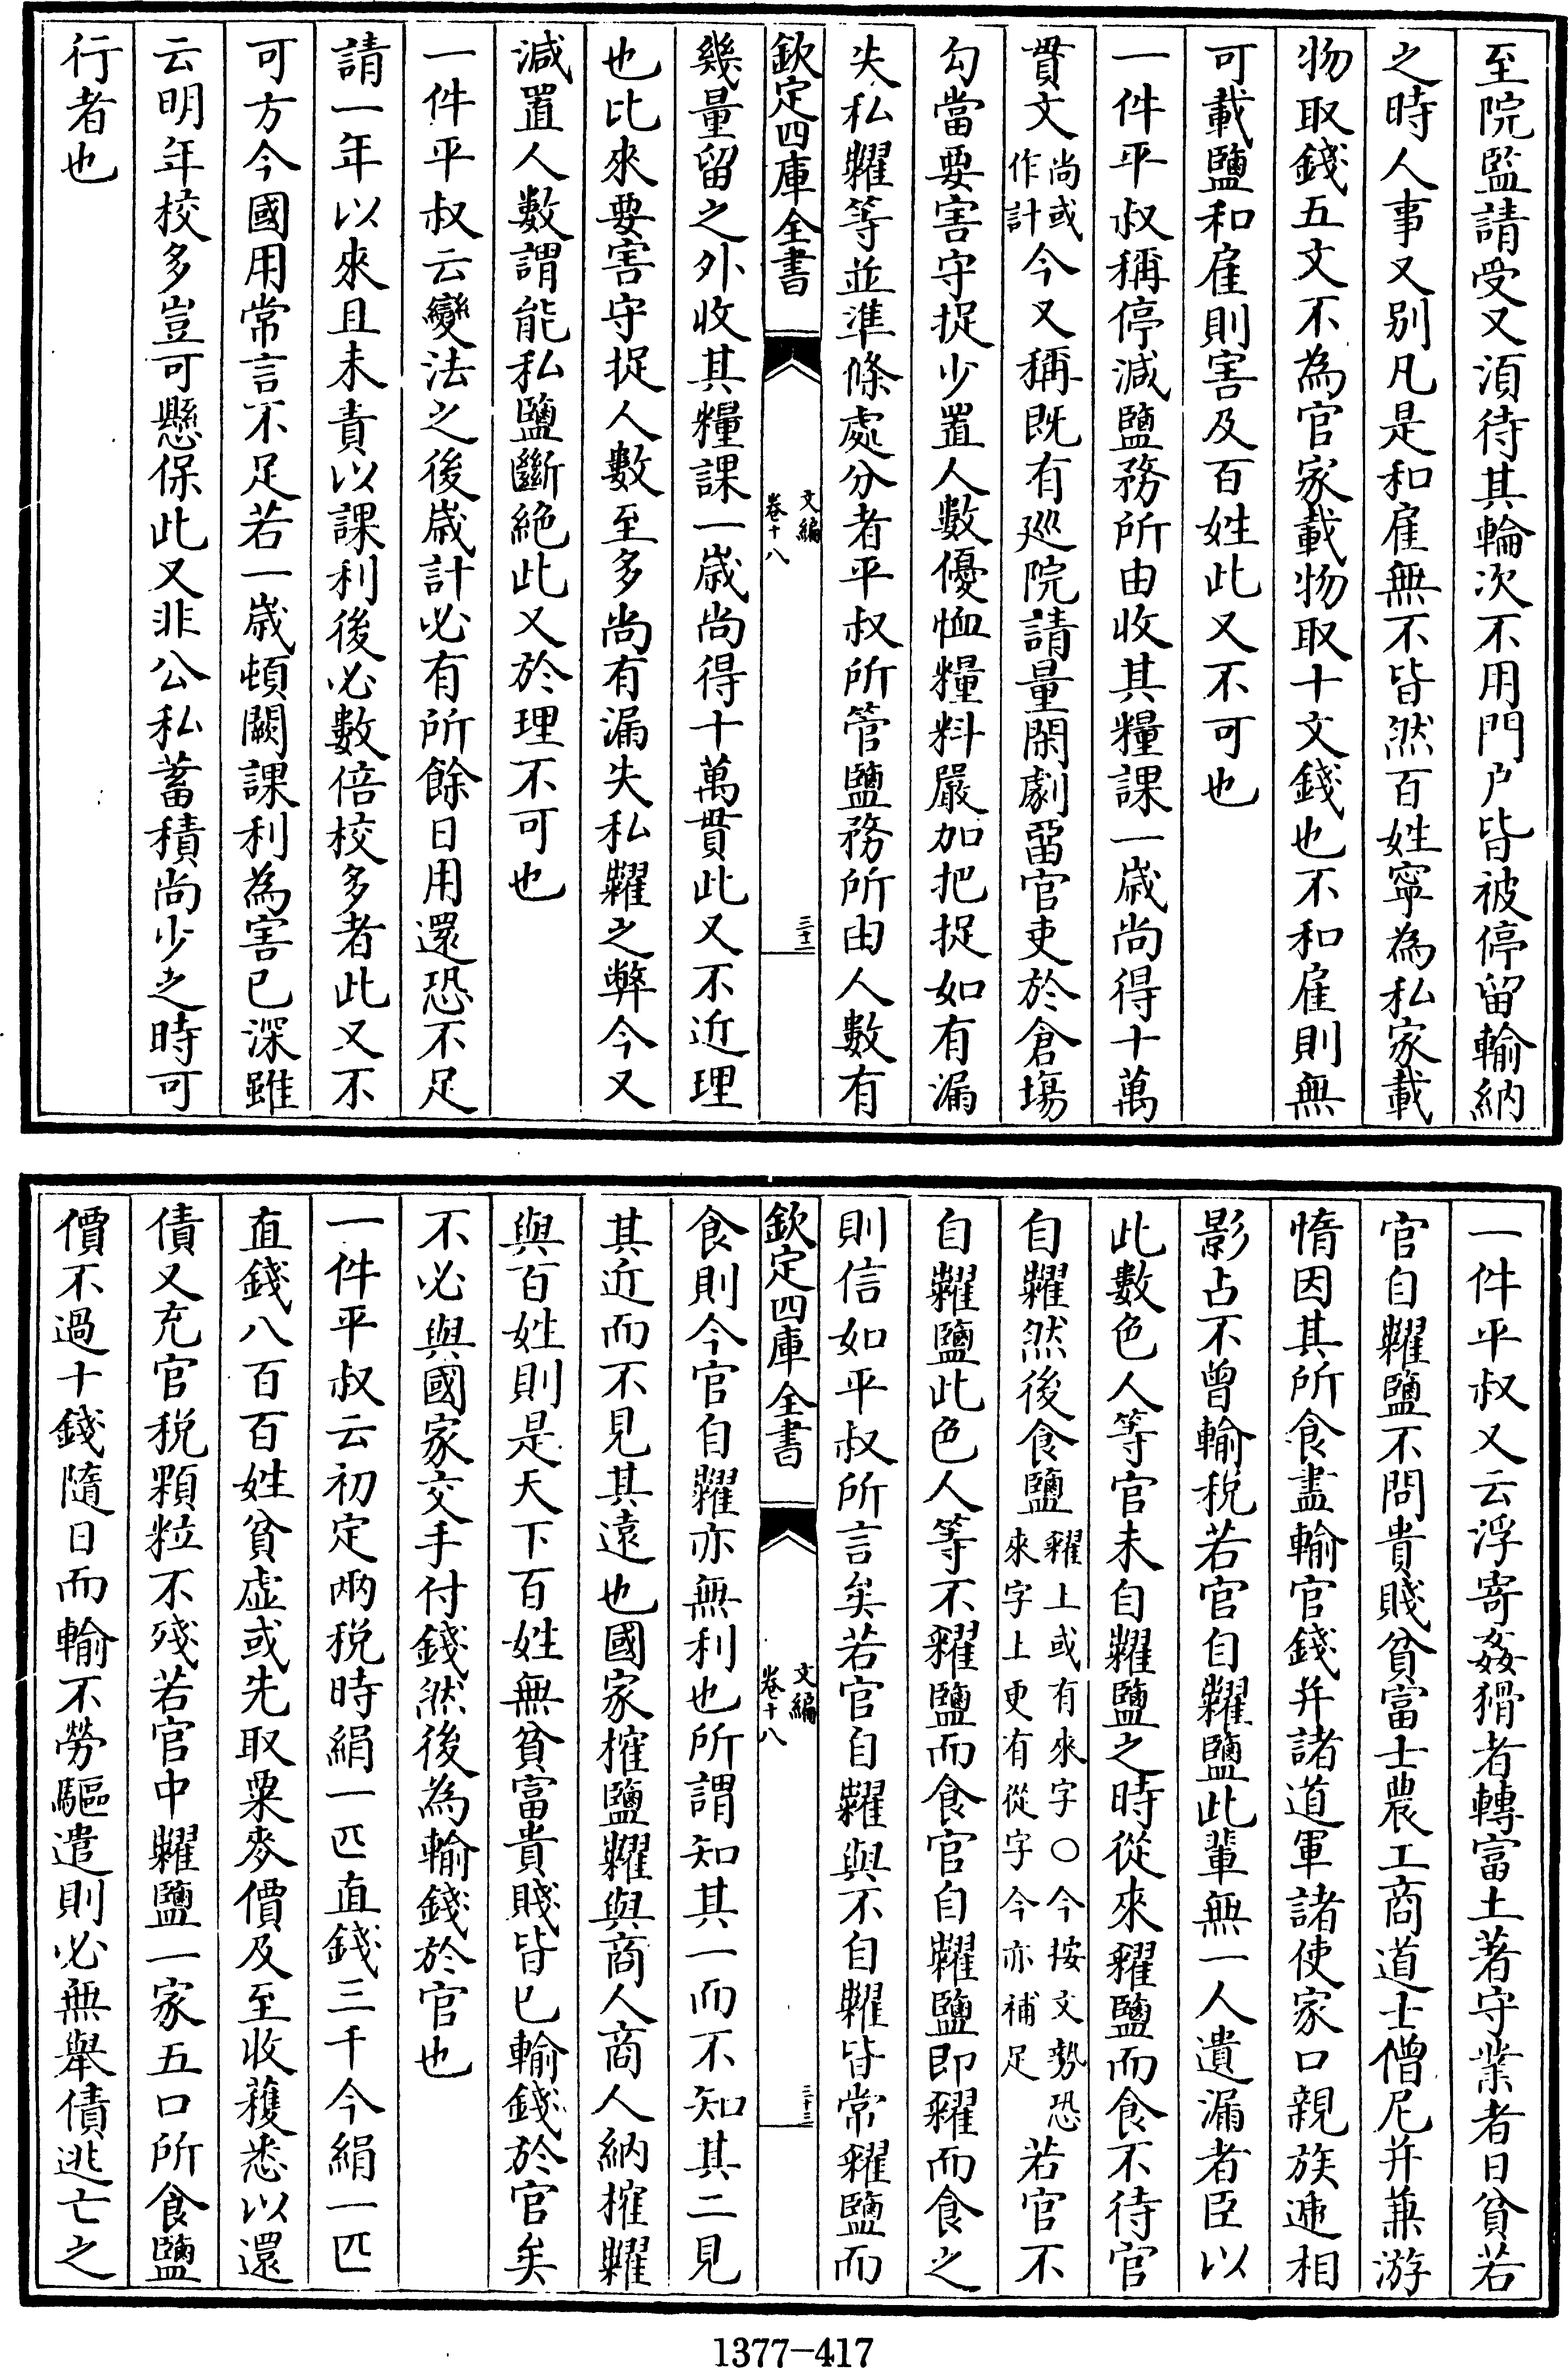 至院監請受又湏待其輪次不用門户皆被停留輸納
之時人事又别凡是和雇無不皆然百姓寜為私家載
物取錢五文不為官家載物取十文錢也不和雇則無
可載鹽和雇則害及百姓此又不可也
一件平叔稱停減鹽務所由收其糧課一嵗尚得十萬
貫文尚或作計今又稱既有廵院請量閑劇留官吏於倉塲
勾當要害守捉少置人數優恤糧料嚴加把捉如有漏
失私糶等並準條處分者平叔所管鹽務所由人數有
欽定四庫全書
文編
卷十八
三十二
幾量留之外收其糧課一嵗尚得十萬貫此又不近理
也比來要害守捉人數至多尚有漏失私糶之弊今又
減置人數謂能私鹽斷絶此又於理不可也
一件平叔云變法之後嵗計必有所餘日用還恐不足
請一年以來且未責以課利後必數倍校多者此又不
可方今國用常言不足若一嵗頓闕課利為害已深雖
云明年校多豈可懸保此又非公私蓄積尚少之時可
行者也
一件平叔又云浮寄姦猾者轉富土著守業者日貧若
官自糶鹽不問貴賤貧富士農工商道士僧尼并兼游
惰因其所食盡輸官錢并諸道軍諸使家口親族遞相
影占不曾輸税若官自糶鹽此輩無一人遺漏者臣以
此數色人等官未自糶鹽之時從來糴鹽而食不待官
自糶然後食鹽糴上或有來字○今按文勢恐來字上更有從字今亦補足若官不
自糶鹽此色人等不糴鹽而食官自糶鹽即糴而食之
則信如平叔所言矣若官自糶與不自糶皆常糴鹽而
欽定四庫全書
文編
卷十八
三十三
食則今官自糶亦無利也所謂知其一而不知其二見
其近而不見其遠也國家榷鹽糶與商人商人納榷糶
與百姓則是天下百姓無貧富貴賤皆已輸錢於官矣
不必與國家交手付錢然後為輸錢於官也
一件平叔云初定兩税時絹一匹直錢三千今絹一匹
直錢八百百姓貧虛或先取粟麥價及至收穫悉以還
債又充官税顆粒不殘若官中糶鹽一家五口所食鹽
價不過十錢隨日而輸不勞驅遣則必無舉債逃亡之
1377-417